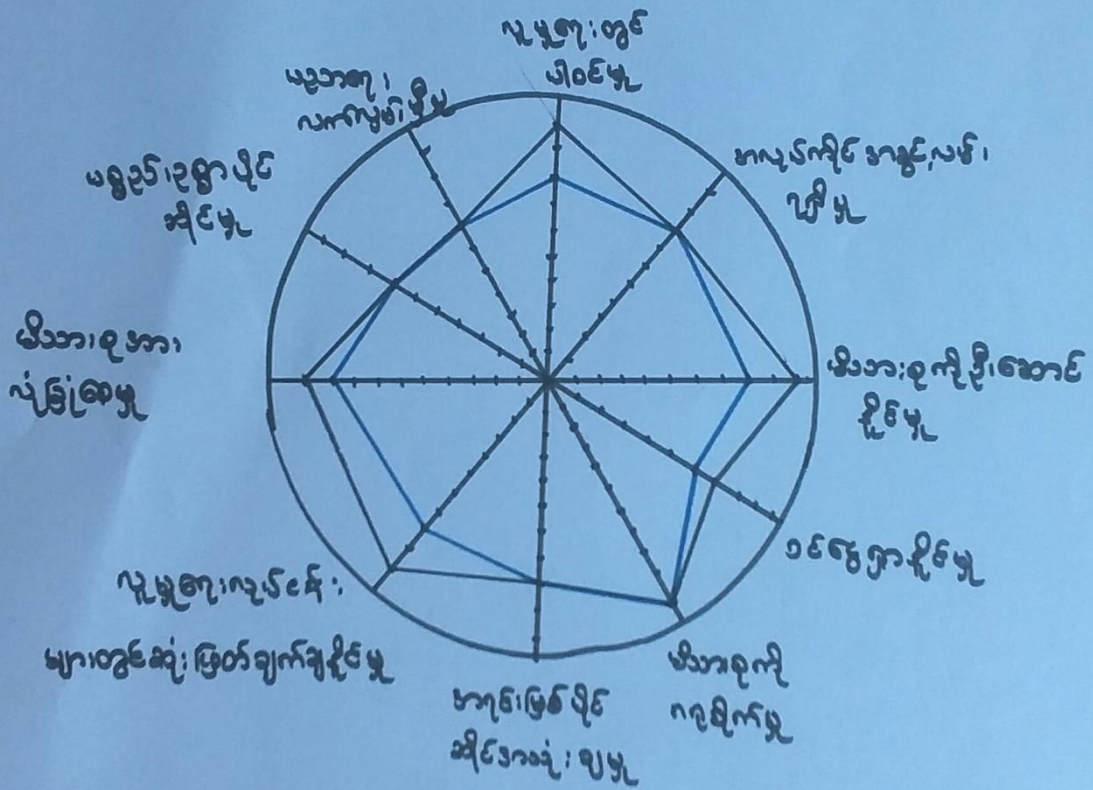 လူမှုရေးတွင်
ပါဝင်မှု
အလုပ်ကိုင်အခွင့်လမ်း
ရရှိမှု
မိသားစုကိုဦးဆောင်
နိုင်မှု
ဝင်ငွေရှာနိုင်မှု
မိသားစုကို
ဂရုစိုက်မှု
အရင်းမြစ်ပိုင်
ဆိုင်အသုံးချမှု
လူမှုရေးလုပ်ငန်း
များတွင်ဆုံးဖြတ်ချက်ချနိုင်မှု
မိသားစုအား
လုံခြုံစေမှု
ပစ္စည်းဥစ္စာပိုင်
ဆိုင်မှု
ပညာရေး
လက်လှမ်းမှီမှု